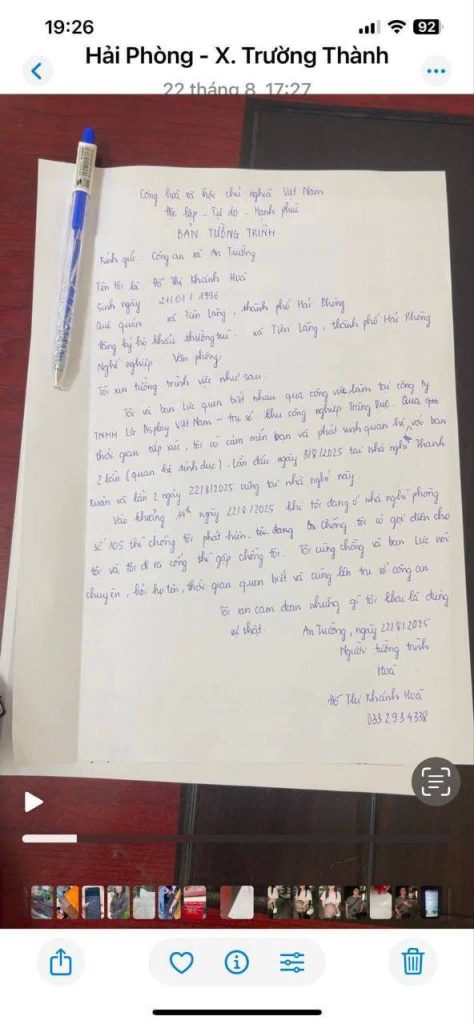 19:26
92
Hải Phòng - X. Trường Thành
22 tháng 8, 17:27
Cộng hoà xã hội chủ nghĩa Việt Nam
Độc lập - Tự do - Hạnh phúc
BẢN TƯỜNG TRÌNH
Kính gửi: Công an xã An Trường
Tên tôi là Đỗ Thị Khánh Hoà
Sinh ngày: 21/01/1996
Quê quán: xã Tiên Lãng, thành phố Hải Phòng
Đăng ký hộ khẩu thường trú: xã Tiên Lãng, thành phố Hải Phòng
Nghề nghiệp: Văn phòng
Tôi xin tường trình việc như sau:
Tôi và bạn Lực quen biết nhau qua công việc làm tại công ty
TNHH LG Display Việt Nam - trụ sở: khu công nghiệp Tràng Duệ. Qua
thời gian tiếp xúc, tôi có cảm mến bạn và phát sinh quan hệ với bạn
2 lần (quan hệ tình dục). Lần đầu ngày 8/8/2025 tại nhà nghỉ Thanh
Xuân và lần 2 ngày 22/8/2025 cũng tại nhà nghỉ này.
Vào khoảng 14h ngày 22/8/2025 khi tôi đang ở nhà nghỉ phòng
số 105 thì chồng tôi phát hiện. Chồng tôi có gọi điện cho
tôi và tôi đi ra cổng thì gặp chồng tôi. Tôi cùng chồng và bạn Lực nói
chuyện, hỏi họ tên, thời gian quen biết và cùng lên trụ sở công an
Tôi xin cam đoan những gì tôi khai là đúng
sự thật.
An Trường, ngày 22/8/2025
Người tường trình
Hoà
Đỗ Thị Khánh Hoà
0332934338